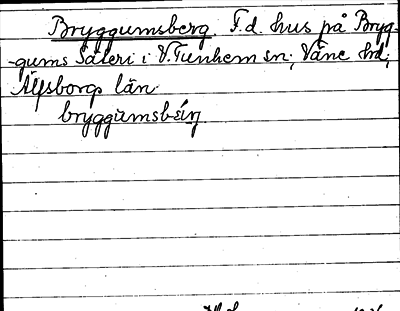 Bryggumsberg F.d. hus på Brygg-
-gums Säteri i V.Tunhem sn; Väne hd;
Älfsborgs län
bryggumsbärj